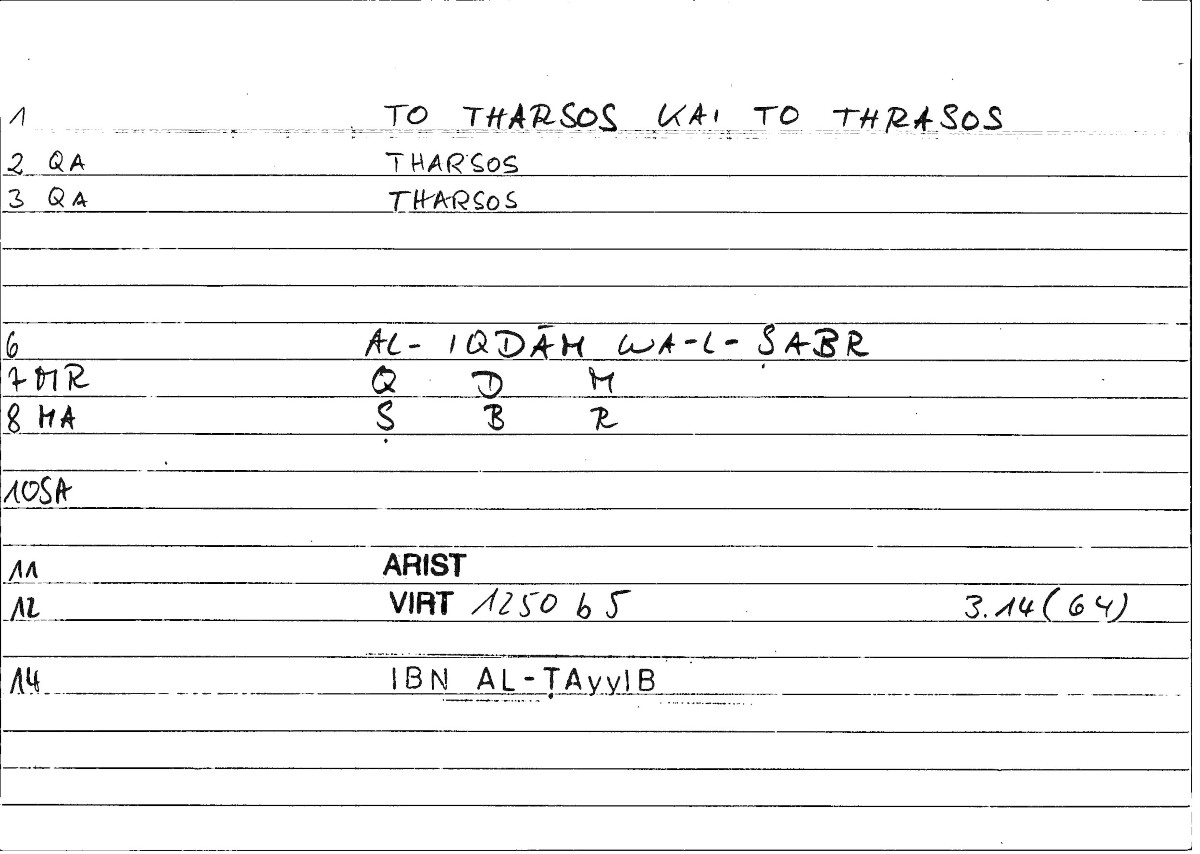 1 TO THARSOS KAI TO THRASOS
2 QA THARSOS
3 QA THARSOS
6 AL-IQDĀM WA-L-ṢABR
7 MR Q D M
8 MA Ṣ B R
10 SA
11 ARIST
12 VIRT 1250 b 5 3.14 (64)
14 IBN AL-ṬAyyIB